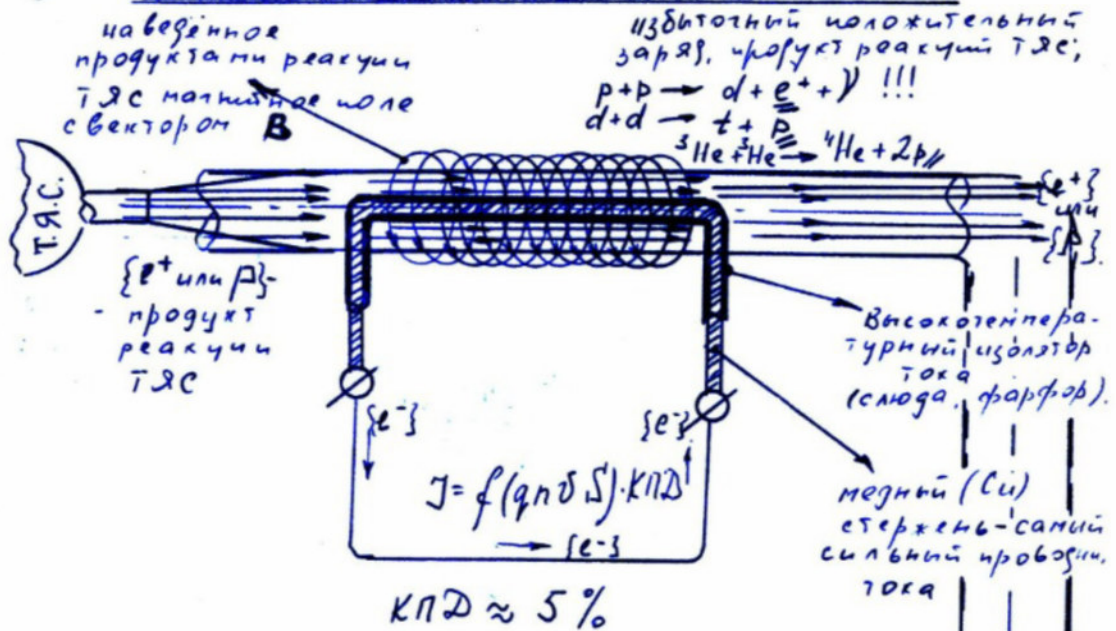 наведённое
продуктами реакции
ТЯС магнитное поле
с вектором B
избыточный положительный
заряд, продукт реакций ТЯС;
p+p → d + e⁺ + ν !!!
d+d → t + p
³He + ³He → ⁴He + 2p
Т.Я.С.
{e⁺}
или
{p}.
{e⁺ или p}-
- продукт
реакции
ТЯС
Высокотемпера-
турный изолятор
тока
(слюда, фарфор).
{e⁻}
{e⁻}
J = f(qnvS)·КПД
→ {e⁻}
медный (Cu)
стержень-самый
сильный проводни.
тока
КПД ≈ 5 %